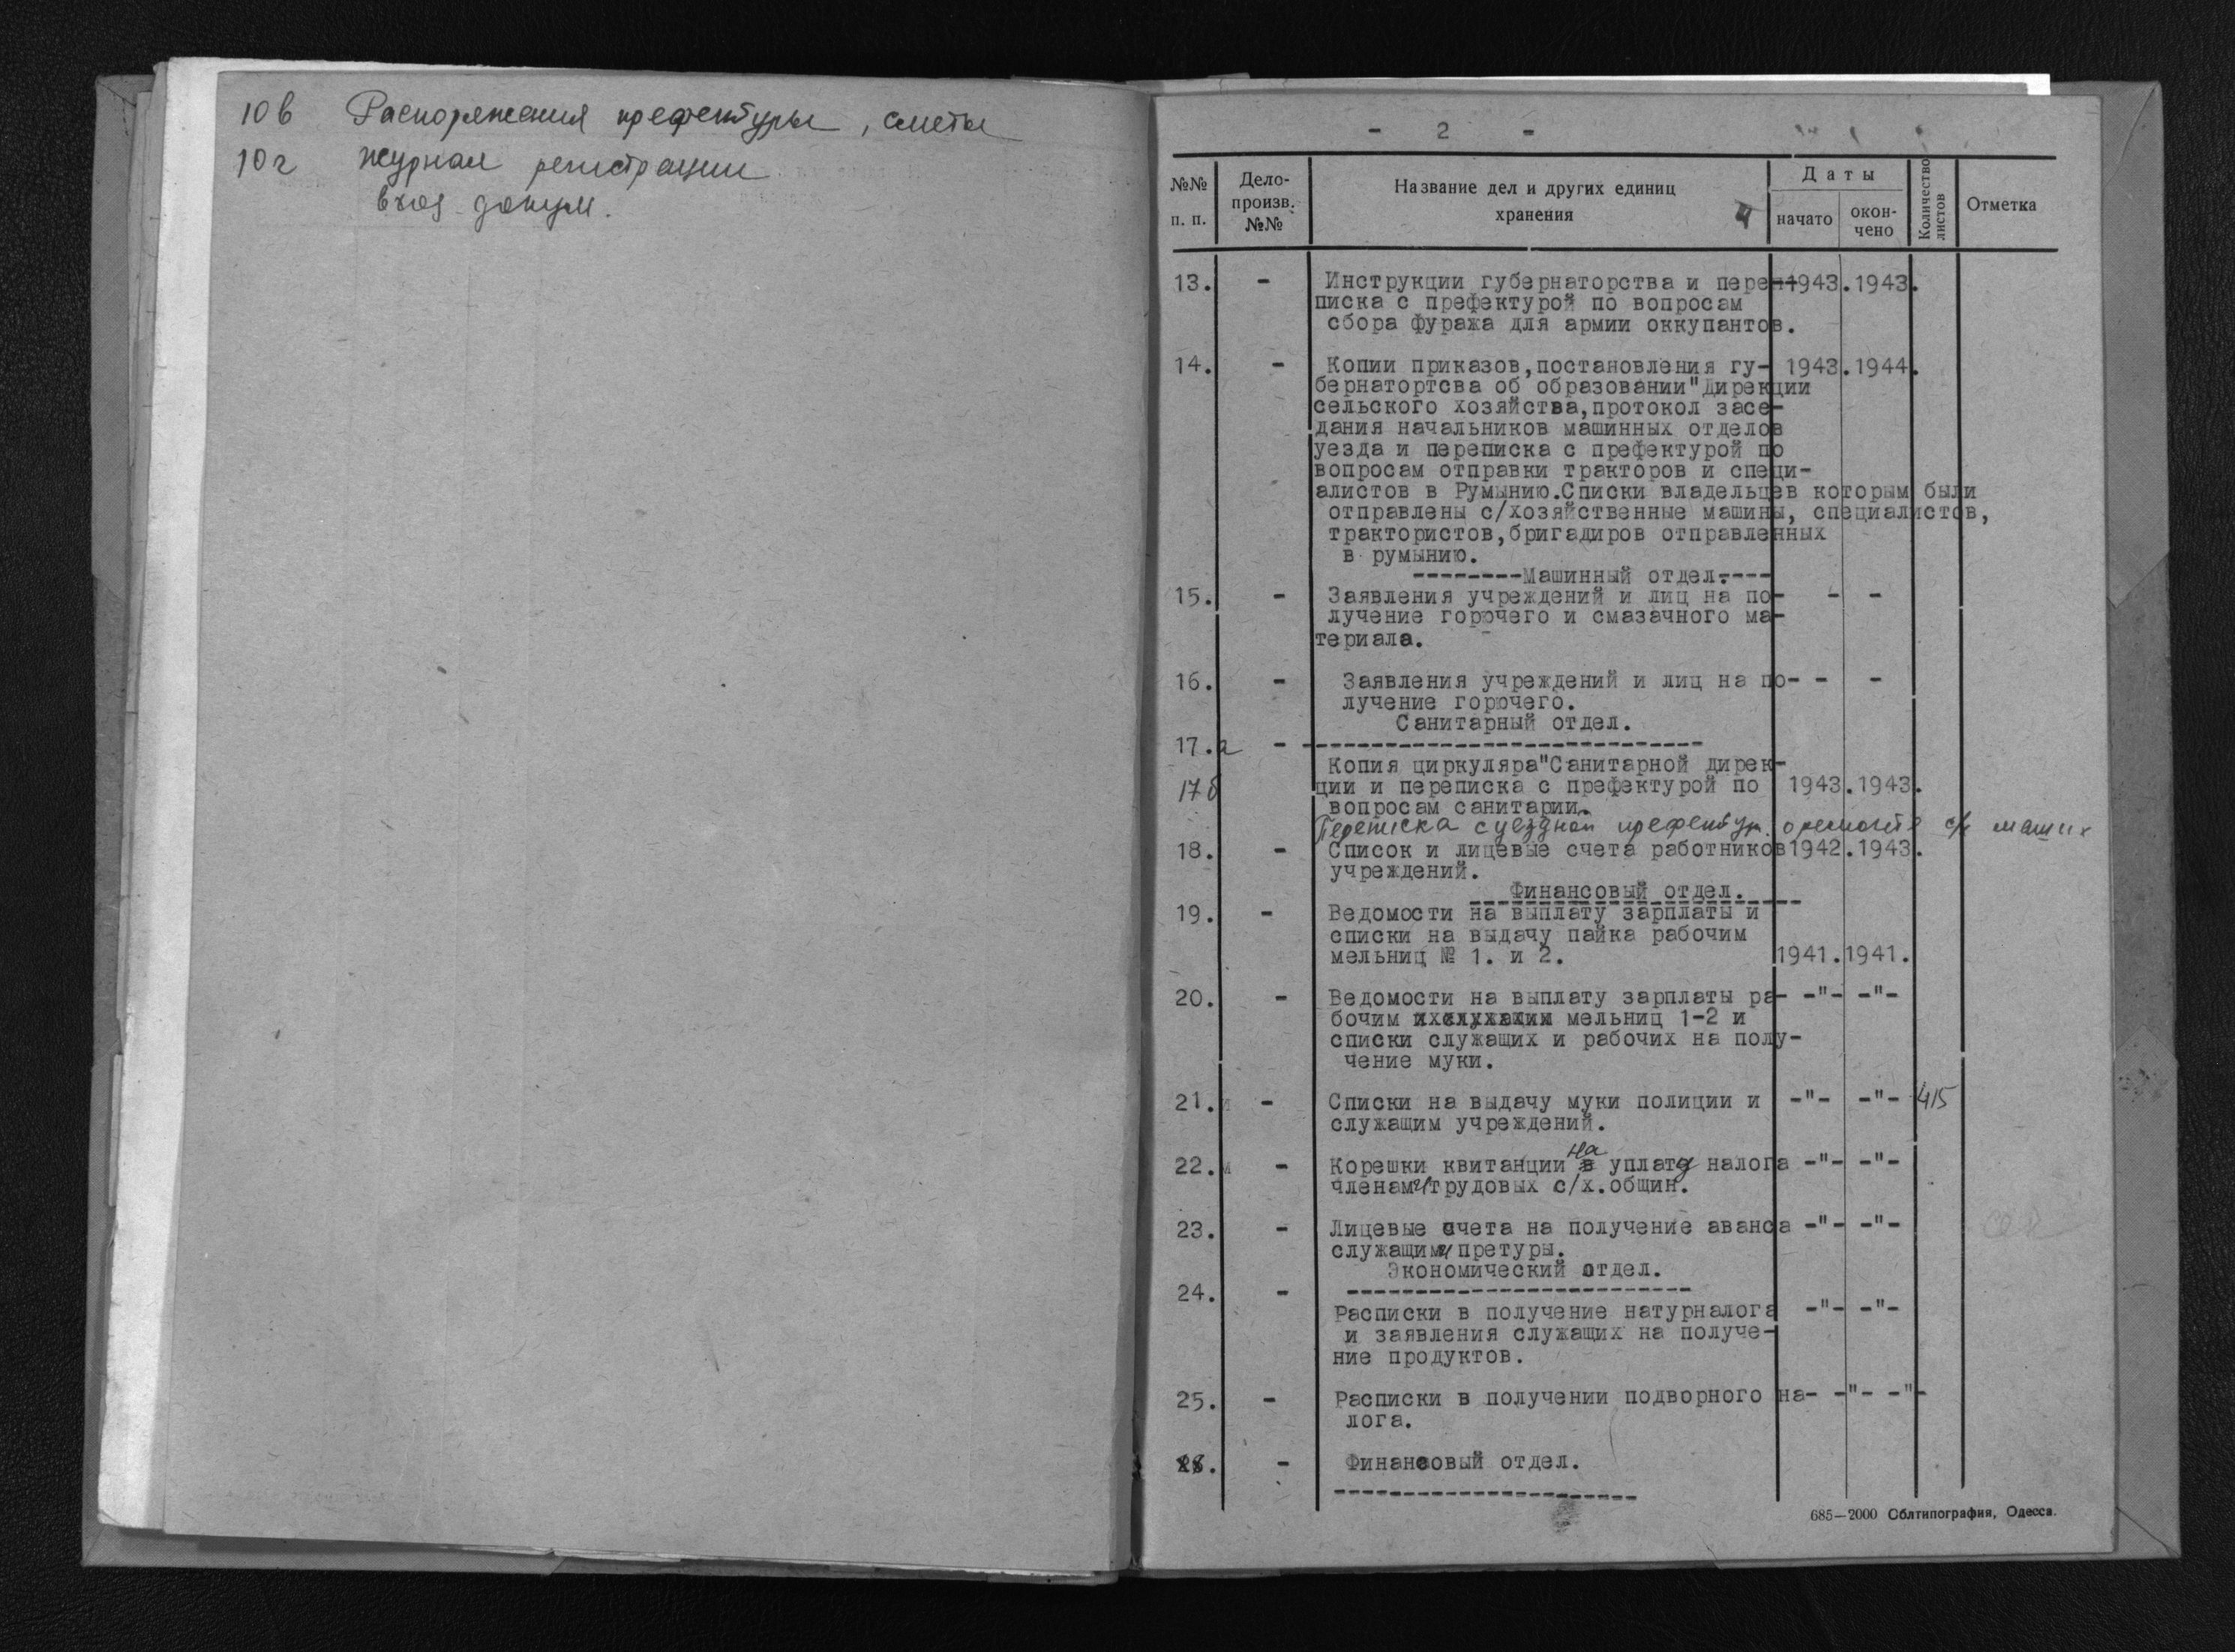 10 в Распоряжения префектуры, сметы
10 г Журнал регистрации
вход. докум.
- 2 -
№№ п. п.
Дело-произв. №№
Название дел и других единиц хранения
Даты
начато
окон-чено
Количество листов
Отметка
13. - Инструкции губернаторства и переп- 1943. 1943.
писка с префектурой по вопросам
сбора фуража для армии оккупантов.
14. - Копии приказов, постановления гу- 1943. 1944.
бернатортсва об образовании "Дирекции
сельского хозяйства, протокол засе-
дания начальников машинных отделов
уезда и переписка с префектурой по
вопросам отправки тракторов и специ-
алистов в Румынию. Списки владельцев которым были
отправлены с/хозяйственные машины, специалистов,
трактористов, бригадиров отправленных
в румынию.
--------Машинный отдел.----
15. - Заявления учреждений и лиц на по- - -
лучение горючего и смазачного ма-
териала.
16. - Заявления учреждений и лиц на по- - -
лучение горючего.
Санитарный отдел.
17.а - ----------------------------
Копия циркуляра "Санитарной дирек-
17б ции и переписка с префектурой по 1943. 1943.
вопросам санитарии.
Переписка с уездной префектур. о ремонте с/х машин
18. - Список и лицевые счета работников 1942. 1943.
учреждений.
Финансовый отдел.
19. - Ведомости на выплату зарплаты и
списки на выдачу пайка рабочим
мельниц № 1. и 2. 1941. 1941.
20. - Ведомости на выплату зарплаты ра- -"- -"-
бочим и служащим мельниц 1-2 и
списки служащих и рабочих на полу-
чение муки.
21. - Списки на выдачу муки полиции и -"- -"- 415
служащим учреждений.
22. - Корешки квитанции на уплату налога -"- -"-
членами трудовых с/х. общин.
23. - Лицевые счета на получение аванса -"- -"-
служащими претуры.
Экономический отдел.
24. - -------------------------
Расписки в получение натурналога -"- -"-
и заявления служащих на получе-
ние продуктов.
25. - Расписки в получении подворного на- -"- -"-
лога.
- Финансовый отдел.
----------------------
685—2000 Облтипография, Одесса.